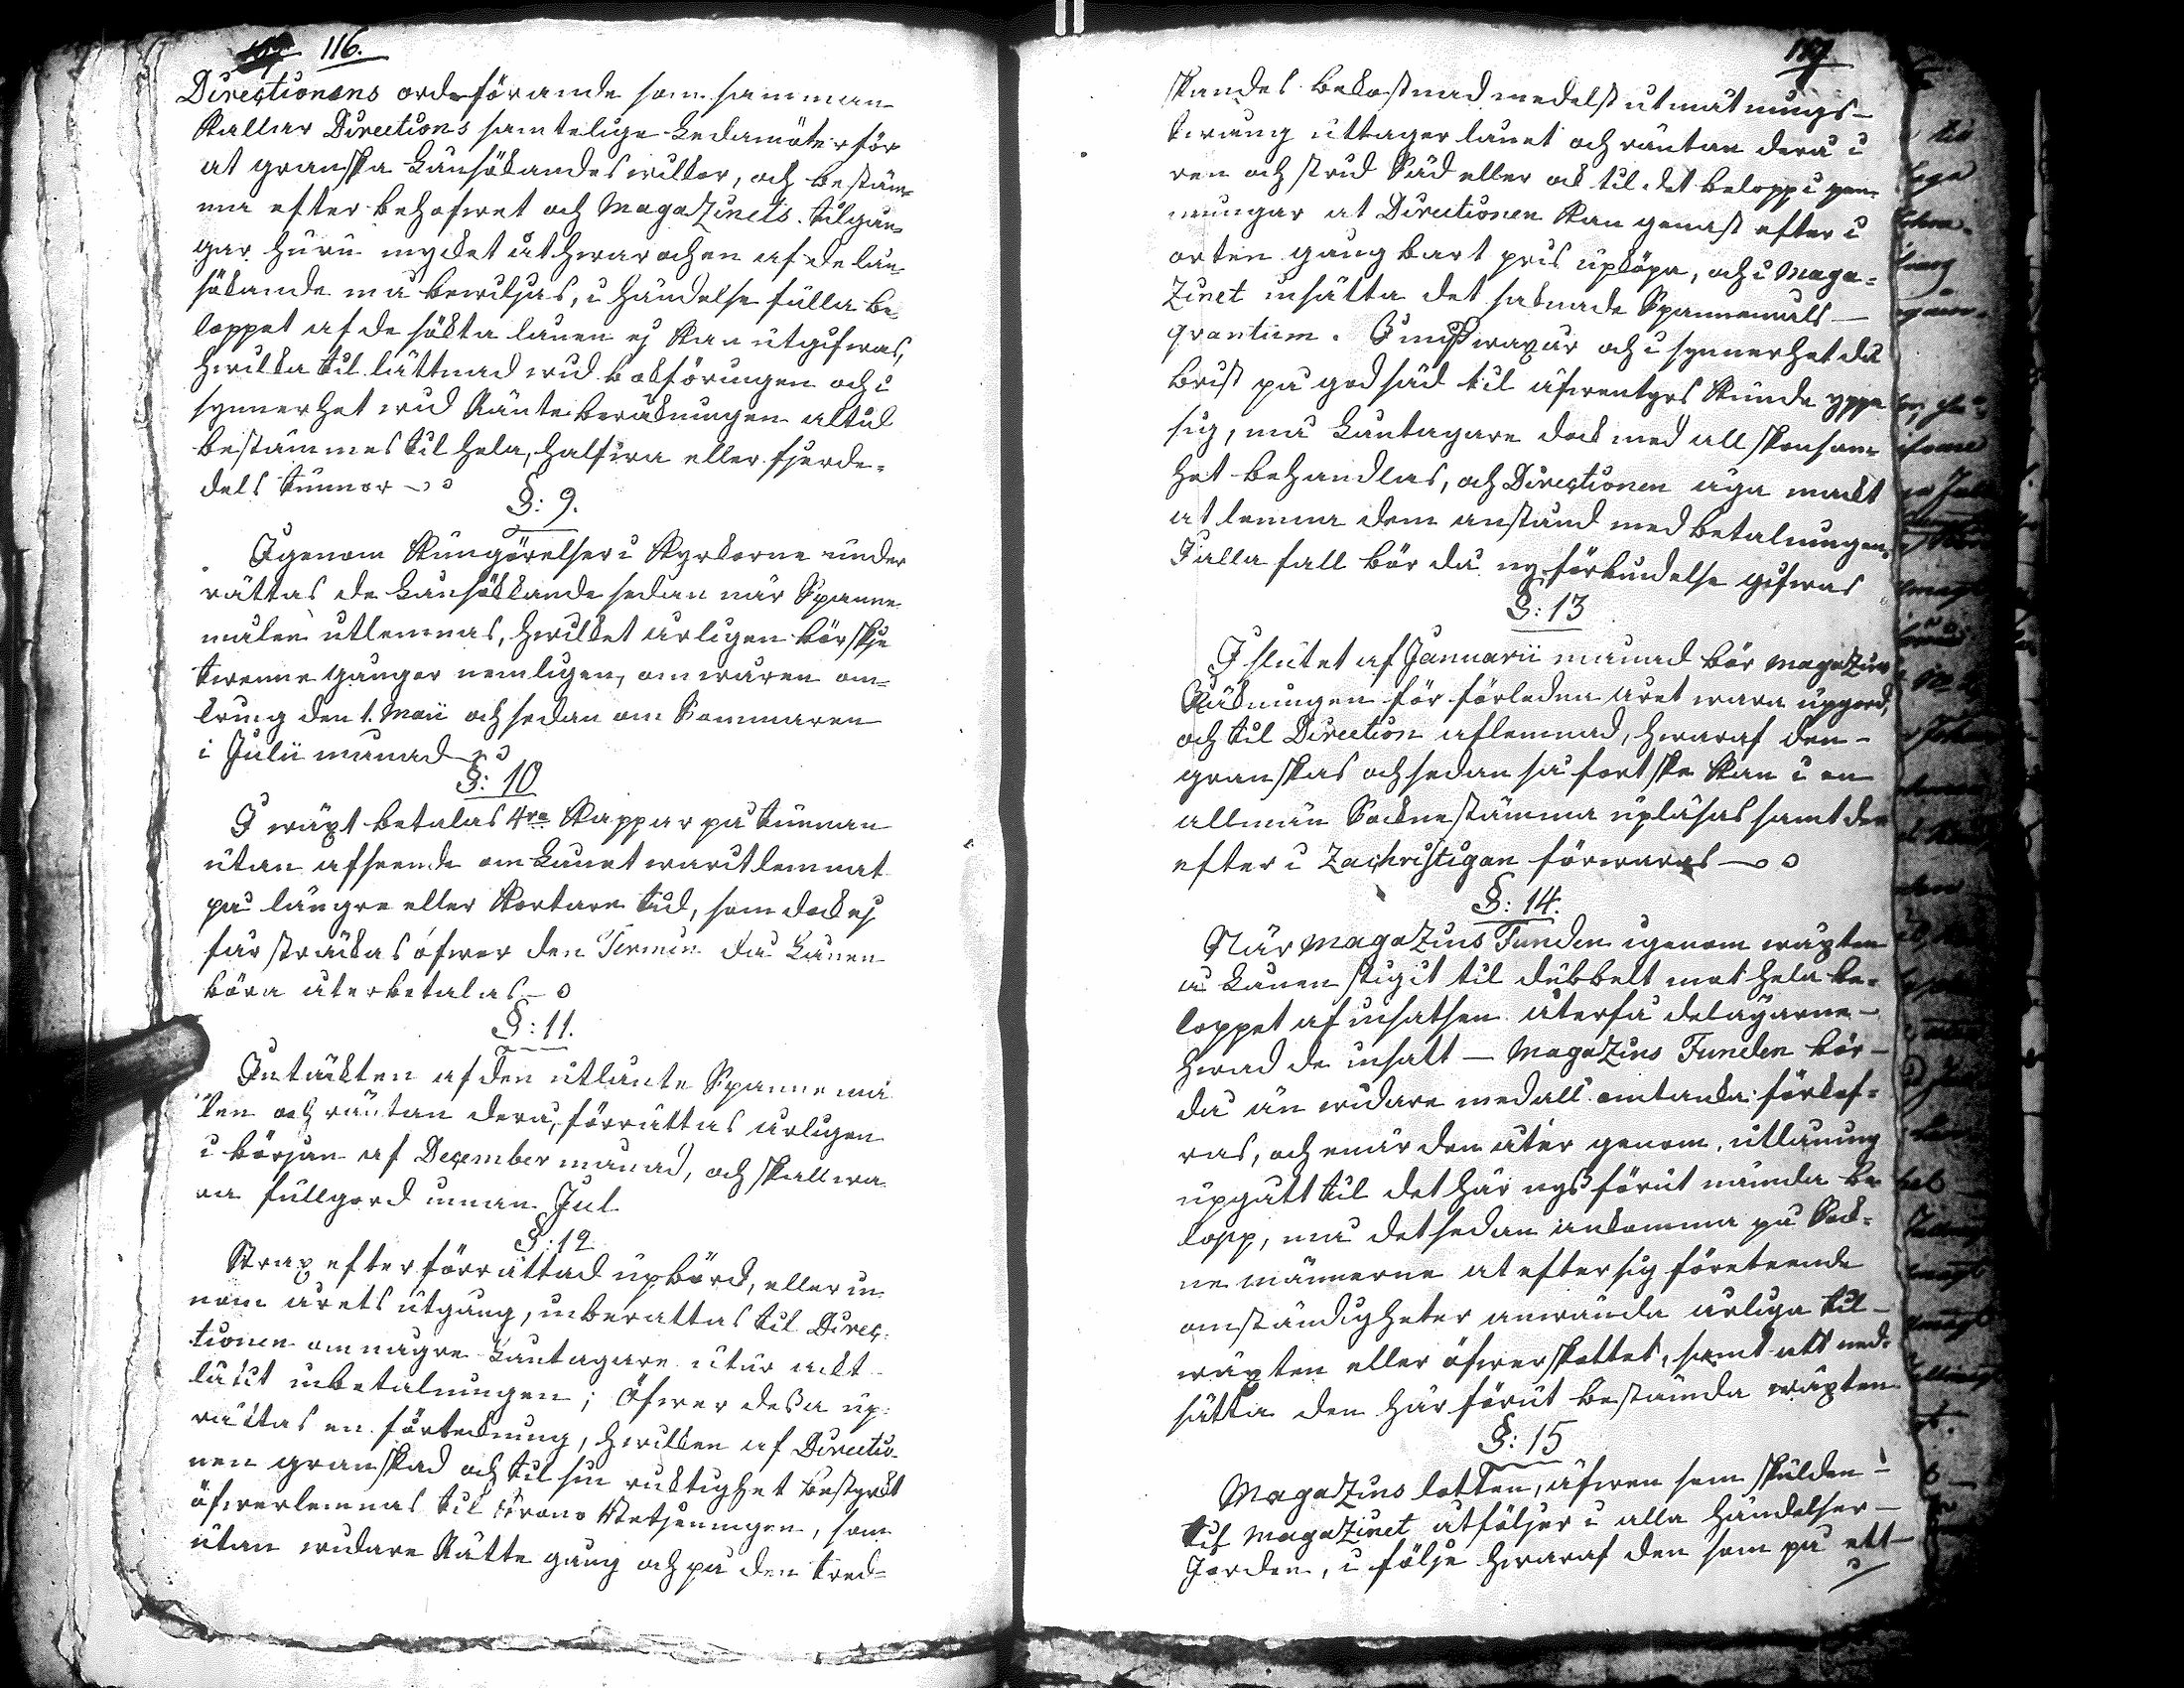 116.
Directionens ordförande som samman
kallar Directions samtelige Ledamöter för
at granska Lånsökandes wilkor, och bestäm-
ma efter behofwet och MagaZinets tilgån-
gar, huru mycket åt hwar och en af de lån-
sökande må bewiljas, i händelse fulla be-
loppet af de sökta lånen ej kan utgifwas,
hwilka til lättnad wid bokföringen och i
synnerhet wid Ränte beräkningen altid
bestämmes til hela, halfwa eller fjerde-
dels tunnor
§: 9.
Igenom Kungörelser i Kyrkorne under
rättas de Lånsökkande sedan när Spanne
målen utlemnas, hwilket årligen bör ske
twenne gånger nemligen, om wåren om-
kring den 1. Maii och sedan om Sommaren
i Julii månad
§: 10
I wäxt betalas 4ra Kappar på tunnan
utan afseende om Lånet warit lemnat
på längre eller kortare tid, som dock ej
får sträckas öfwer den Termin då Lånen
böra återbetalas
§: 11.
Intäkten af den utlånte Spannemå
len och räntan derå, förrättas årligen
i början af December månad, och skall wa
ra fullgord innan Jul
§: 12
Strax efter förrättad upbörd, eller in
nom årets utgång, inberättas til Direc-
tionen om några Låntagare utur akt
låtit inbetalningen; Öfwer dessa up-
rättas en förteckning, hwilken af Directio-
nen granskad och til sin riktighet bestyrkt
öfwerlemnas til Krono Betjeningen, som
utan widare Rätte gång och på den tred-
117
skandes bekostnad medelst utmätnings-
twång uttager lånet och räntan derå i
ren och strid Säd eller ock til det belopp i pen-
ningar at Directionen kan genast efter i
orten gångbart pris upköpa, och i Maga-
Zinet insätta det saknade Spannemåls
qvantum. I missväxtår och i synnerhet då
brist på god säd til äfwentyrs kunde yppa
sig, må Låntagare dock med all skonsam
het behandlas, och Directionen äga makt
at lemna dem anstånd med betalningen.
I alla fall bör då ny förbindelse gifwas
§: 13
I slutet af Januarii månad bör MagaZins
Räkningen för förledna året wara upgord,
och til Direction aflemnad, hwaraf den
granskas och sedan så fort ske kan i en
allmän Sockne stämma upläsas samt der
efter i Zachristigan förwaras
§: 14.
När MagaZins Funden igenom wäxten
å Lånen stigit til dubbelt mot hela be-
loppet af insatsen återfå delägarne
hwad de insatt — MagaZins Funden bör
då än widare med all omtanka förkof-
ras, och enär den åter genom utlåning
upgått til det här nyss förut nämda be
lopp, må det sedan ankomma på Sock-
ne männerne at efter sig företeende
omständigheter använda årliga til-
wäxten eller öfwerskottet, samt att ned-
sätta den här förut bestämda wäxten
§: 15
MagaZins lotten, äfwen som skulden
til MagaZinet åtföljer i alla händelser
Jorden, i följe hwaraf den som på ett